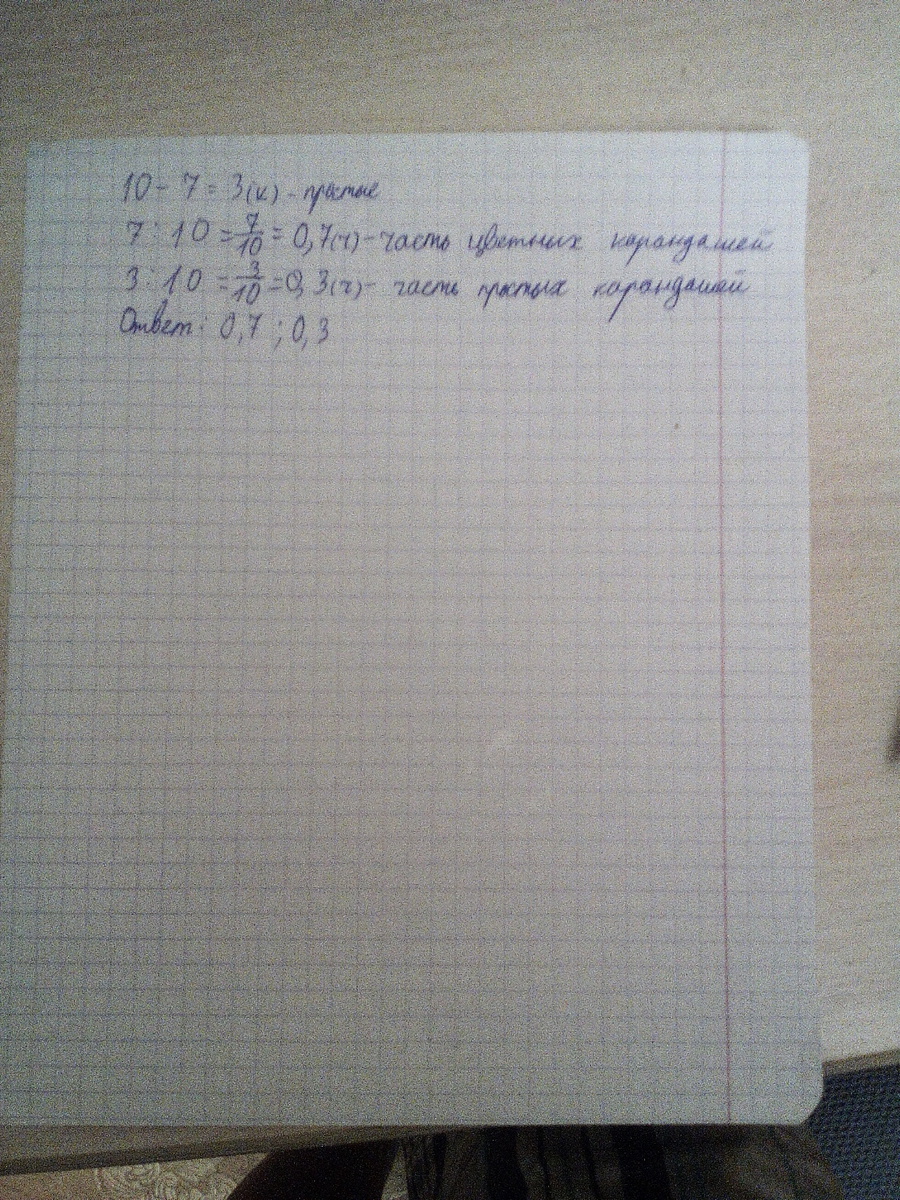 10 - 7 = 3(к) - простые
7 : 10 = 7/10 = 0,7(ч) - часть цветных карандашей
3 : 10 = 3/10 = 0,3(ч) - часть простых карандашей
Ответ: 0,7 ; 0,3